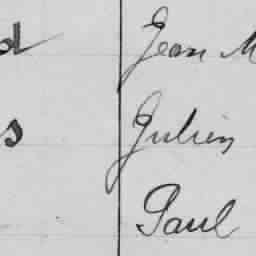 d Jean M
s Julien
Paul